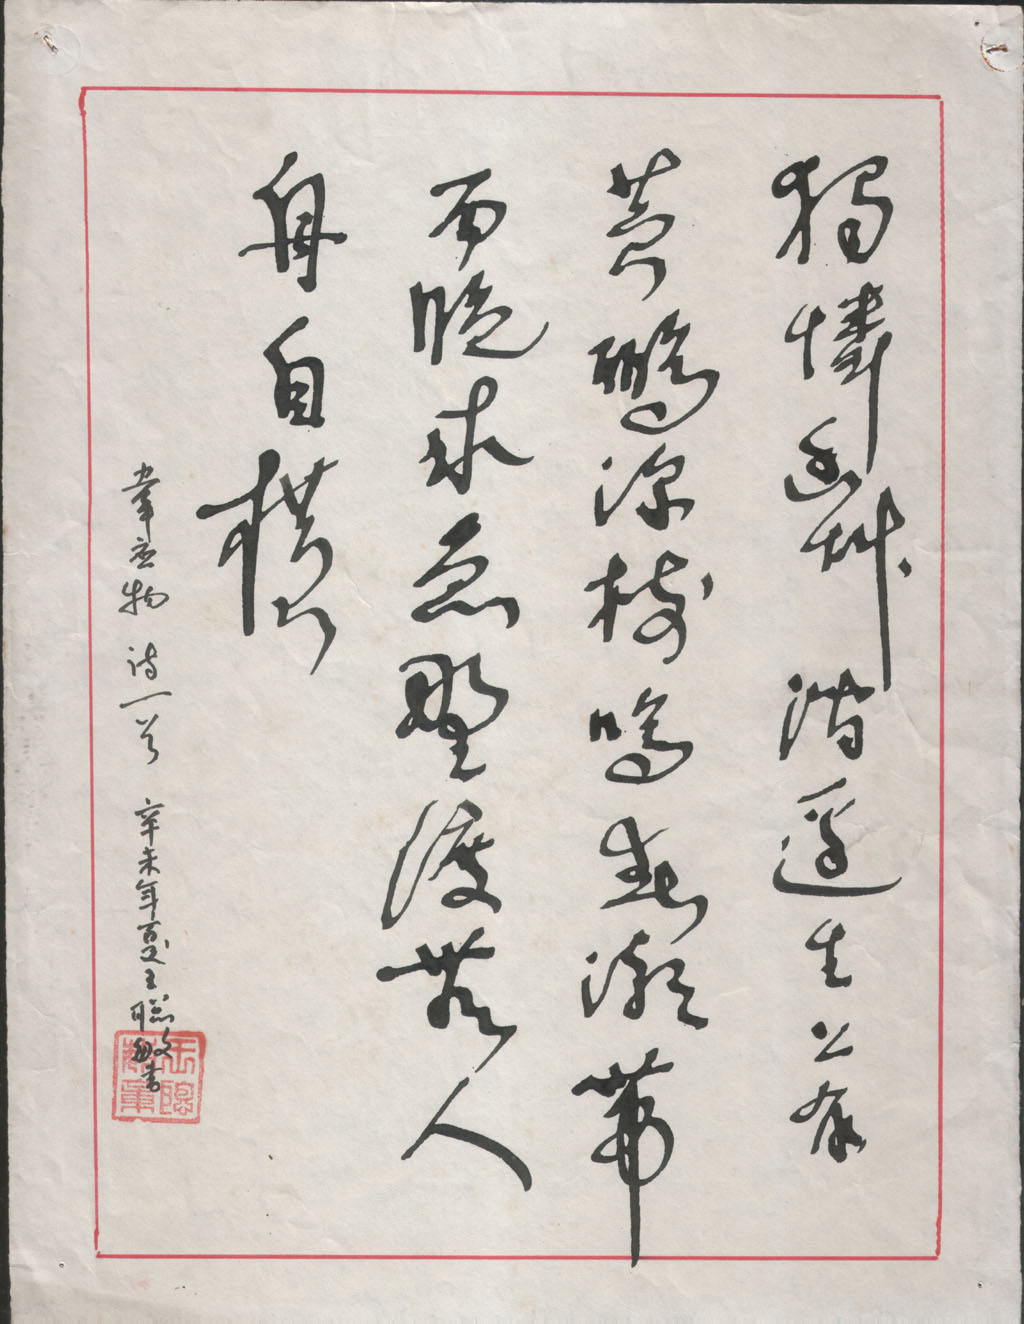 獨憐幽艸澗邊生上有
黃鸝深樹鳴春潮帶
雨晚來急野渡無人
舟自橫
韋應物詩一首 辛未年夏王聰敏書